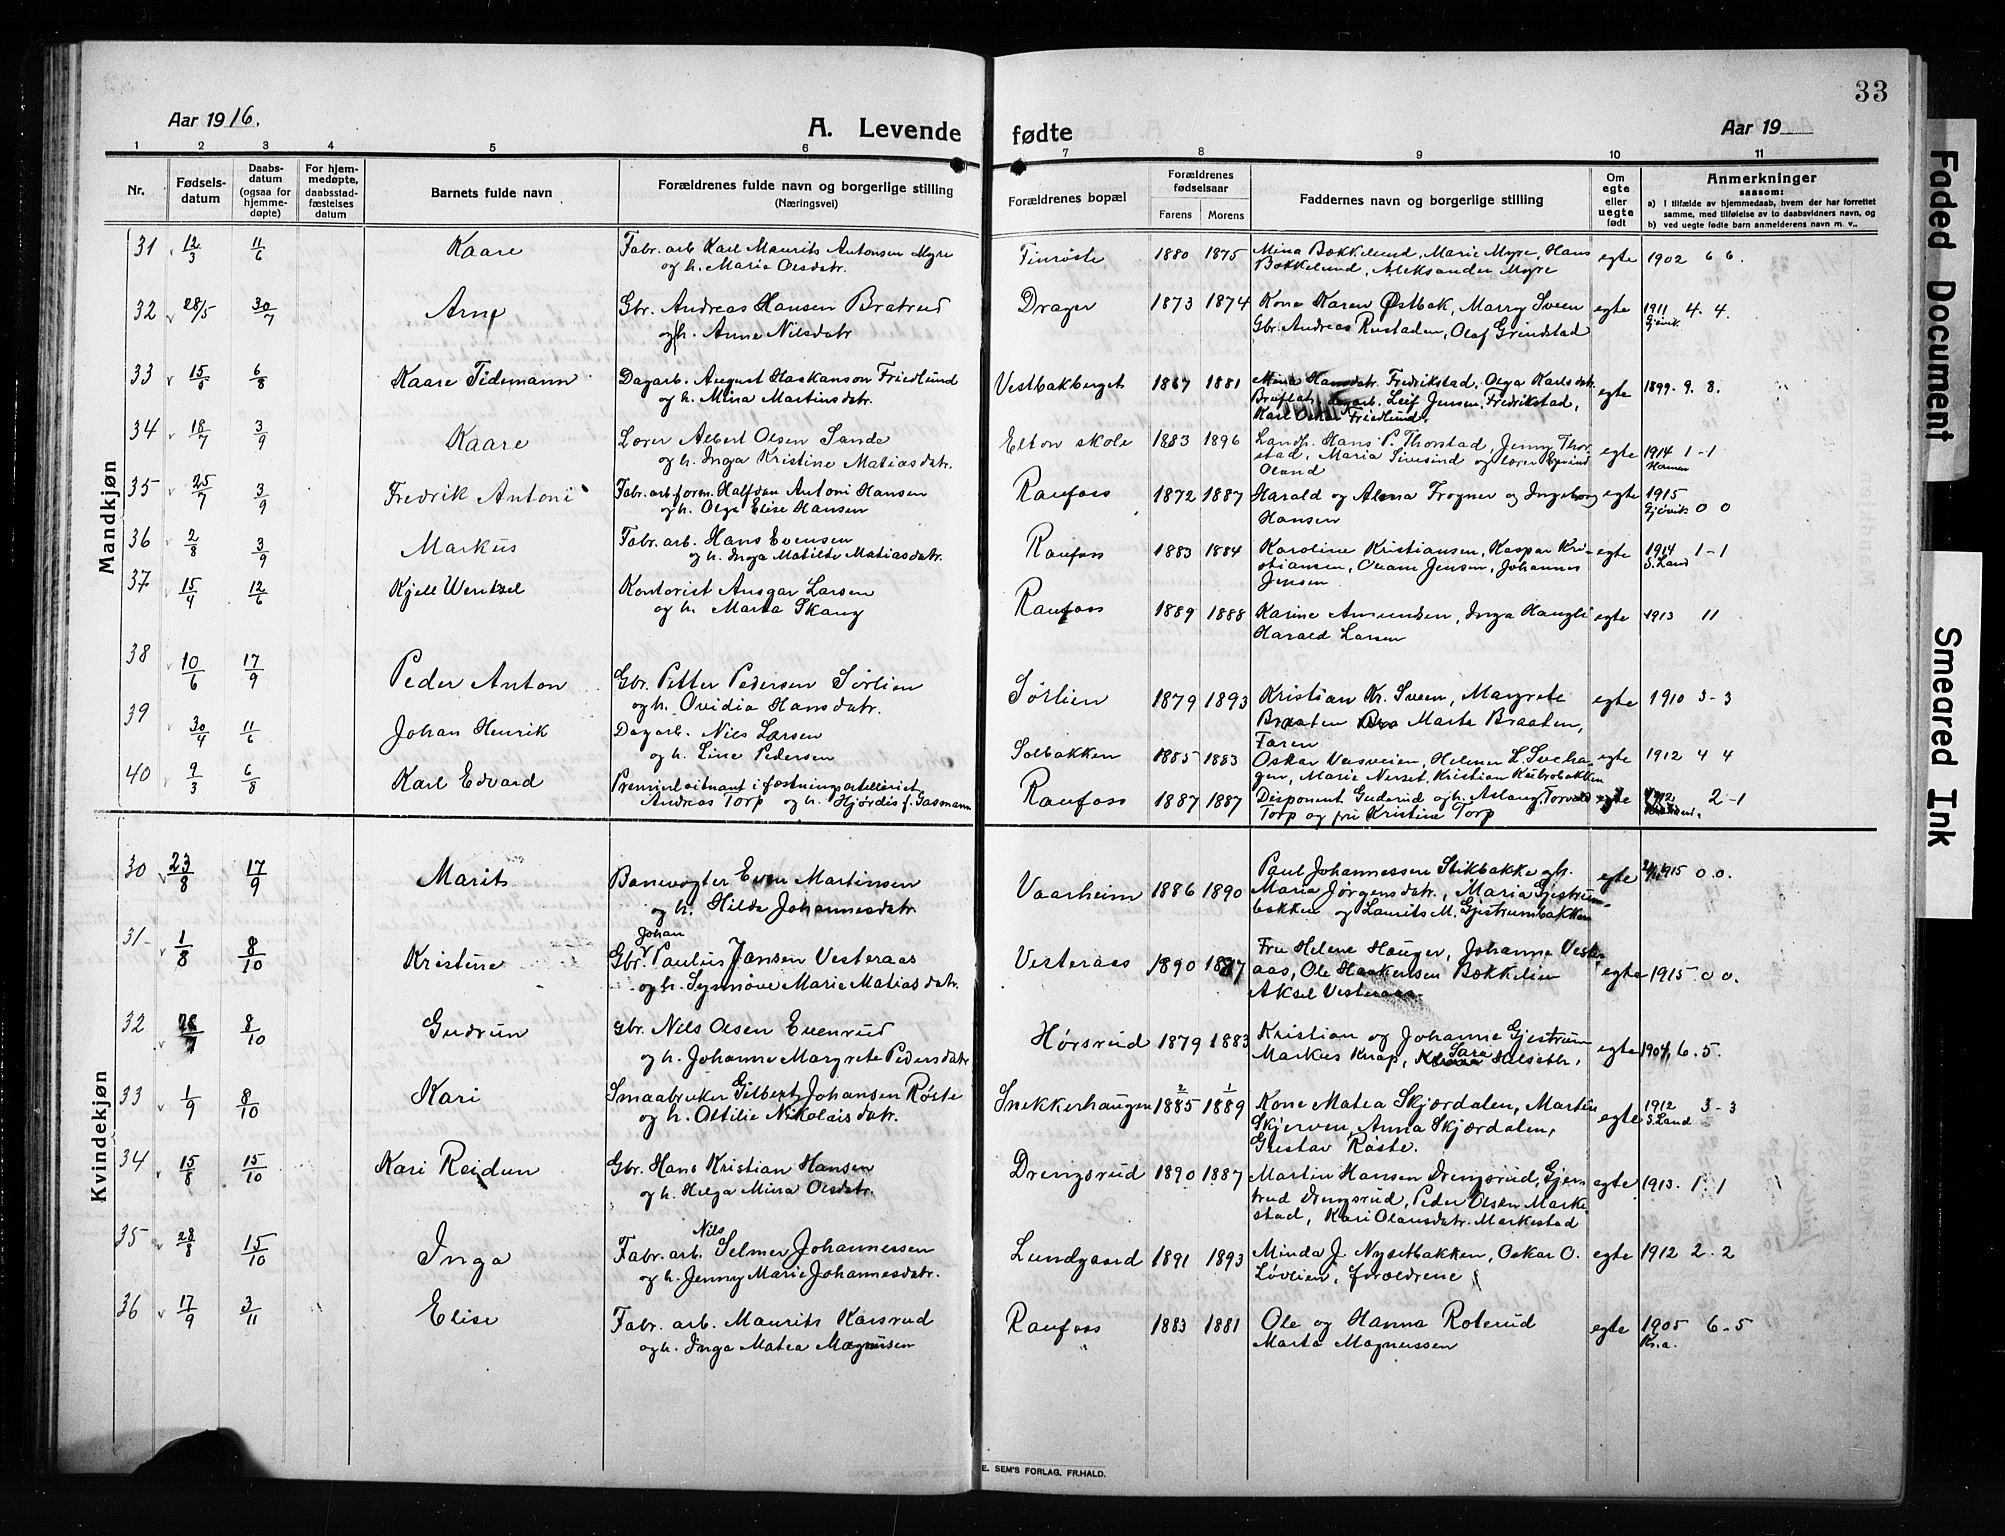 33
Aar 1916.
A. Levende fødte
Aar 19
1 2 3 4 5 6 7 8 9 10 11
Nr.
Fødsels-
datum
Daabs-
datum
(ogsaa for
hjemme-
døpte)
For hjem-
medøpte,
daabsstad-
fæstelses
datum
Barnets fulde navn
Forældrenes fulde navn og borgerlige stilling
(Næringsvei)
Forældrenes bopæl
Forældrenes
fødselsaar
Farens Morens
Faddernes navn og borgerlige stilling
Om
egte
eller
uegte
født
Anmerkninger
saasom:
a) I tilfælde av hjemmedaab, hvem der har forrettet
samme, med tilføielse av to daabsvidners navn, og
b) ved uegte fødte barn anmelderens navn m. v..
Mandkjøn
31 12/3 11/6 Kaare Fabr. arb. Karl Maurits Antonsen Myre Finrøste 1880 1875 Mina Bækkelund, Marie Myre, Hans egte 1902 6 6.
og h. Marie Olsdatr. Bækkelund, Aleksander Myre
32 28/5 30/7 Arne Gbr. Andreas Hansen Bratrud Drager 1873 1874 Kone Karen Østbak, Marry Sveen egte 1911 4. 4.
og h. Anne Nilsdatr Gbr. Andreas Rustaden, Olaf Grindstad Gjøvik
33 15/6 6/8 Kaare Tidemann Dagarb. August Haakanson Friedlund Vestbakberget 1867 1881 Mina Hansdatr. Fredrikstad, Olga Karlsdatr. egte 1899. 9. 8.
og h. Mina Martinsdatr. Bruflat, dagarb. Leif Jensen, Fredrikstad,
Karl Oskar Friedlund.
34 18/7 3/9 Kaare Lærer Albert Olsen Sande Elton skole 1883 1896 Landh. Hans P. Thorstad, Jenny Thor- egte 1914 1-1
og h. Inga Kristine Matiasdatr. stad, Maria Sivesind og lærer Eyvind
Øland
35 25/7 3/9 Fredrik Antoni Fabr. arb. form. Halfdan Antoni Hansen Raufoss 1872 1887 Harald og Alma Frogner og Ingeborg egte 1915 0 0
og h. Olga Elise Hansen Hansen Gjøvik
36 2/8 3/9 Markus Fabr. arb. Hans Evensen Raufoss 1883 1884 Karoline Kristiansen, Kaspar Kri- egte 1914 1-1
og h. Inga Matilde Matiasdatr. stiansen, Jensen, Johannes S. Land
Jensen
37 15/4 12/6 Kjell Wentzel Kontorist Ansgar Larsen Raufoss 1889 1888 Karine Amundsen, Inga Haugli egte 1913 11
og h. Marta Skaug Harald Larsen
38 10/6 17/9 Peder Anton Gbr. Petter Pedersen Sørlien Sørlien 1879 1893 Kristian Kr. Sveen, Margrete egte 1910 3-3
og h. Ovidia Hansdatr. Braaten Marte Braaten,
Faren
39 30/4 11/6 Johan Henrik Dagarb. Nils Larsen Solbakken 1885 1883 Oskar Versveien, Helmer L. Sveha- egte 1912 4 4
og h. Line Pedersen gen, Marie Nerset, Kristian Kulsobakken
40 9/3 6/8 Karl Edvard Premierløitnant i fæstningsartilleriet Raufoss 1887 1887 Disponent Guderud og h. Aslaug, Torvald 2-1
Andreas Torp og h. Hjørdis f. Gasmann Torp og frk Kristine Torp
Kvindekjøn
30 23/8 17/9 Marit Banevogter Even Martinsen Vaarheim 1886 1890 Paul Johannessen Stikbakke og h. egte 1915 0 0.
og h. Hilda Johannesdatr Maria Jørgensdatr., Maria Gjestrum-
bakken og Laurits M. Gjestrumbakken
31 1/8 8/10 Kristine Gbr. Johan Paulus Jansen Vesteraas Vesteraas 1890 1887 Fru Helene Hauger, Johanne Vester- egte 1915. 0 0.
og h. Synnøve Marie Matiasdatr. aas, Ole Haakensen Bækkelien
Aksel Vesteraas.
32 8/10 Gudrun Gbr. Nils Olsen Evenrud Hørsrud 1879 1883 Kristian og Johanne Gjestrum egte 1904, 6. 5.
og h. Johanne Margrete Pedersdatr Markus Knap, Sara Helseth.
33 1/9 8/10 Kari Smaabruker Gilbert Johansen Røste Snekkerhaugen 2/1885 1/1889 Kone Matea Skjærdalen, Martin egte 1912 3-3
og h. Ottilie Nikolaisdatr. Skjerven, Anna Skjærdalen, S. Land
Gustav Røste.
34 15/8 15/10 Kari Reidun Gbr. Hans Kristian Hansen Drengsrud 1890 1887 Martin Hansen Drengsrud, Gjer- egte 1913. 1. 1
og h. Helga Mina Olsdatr. trud Drengsrud, Peder Olsen Marke-
stad, Kari Olausdatr. Markestad
35 28/8 15/10 Inga Fabr. arb. Nils Selmer Johannessen Lundgaard 1891 1893 Minda J. Nysetbakken, Oskar O. egte 1912 2. 2
og h. Jenny Marie Johannesdatr. Løvlien, forældrene
36 17/9 3/11 Elise Fabr. arb. Maurits Karsrud Raufoss 1883 1881 Ole og Hanna Roterud egte 1905 6-5
og h. Inga Matea Magnussen Marta Magnussen Kr.a.
E. SEM'S FORLAG, FR.HALD.
Faded Document
Smeared Ink